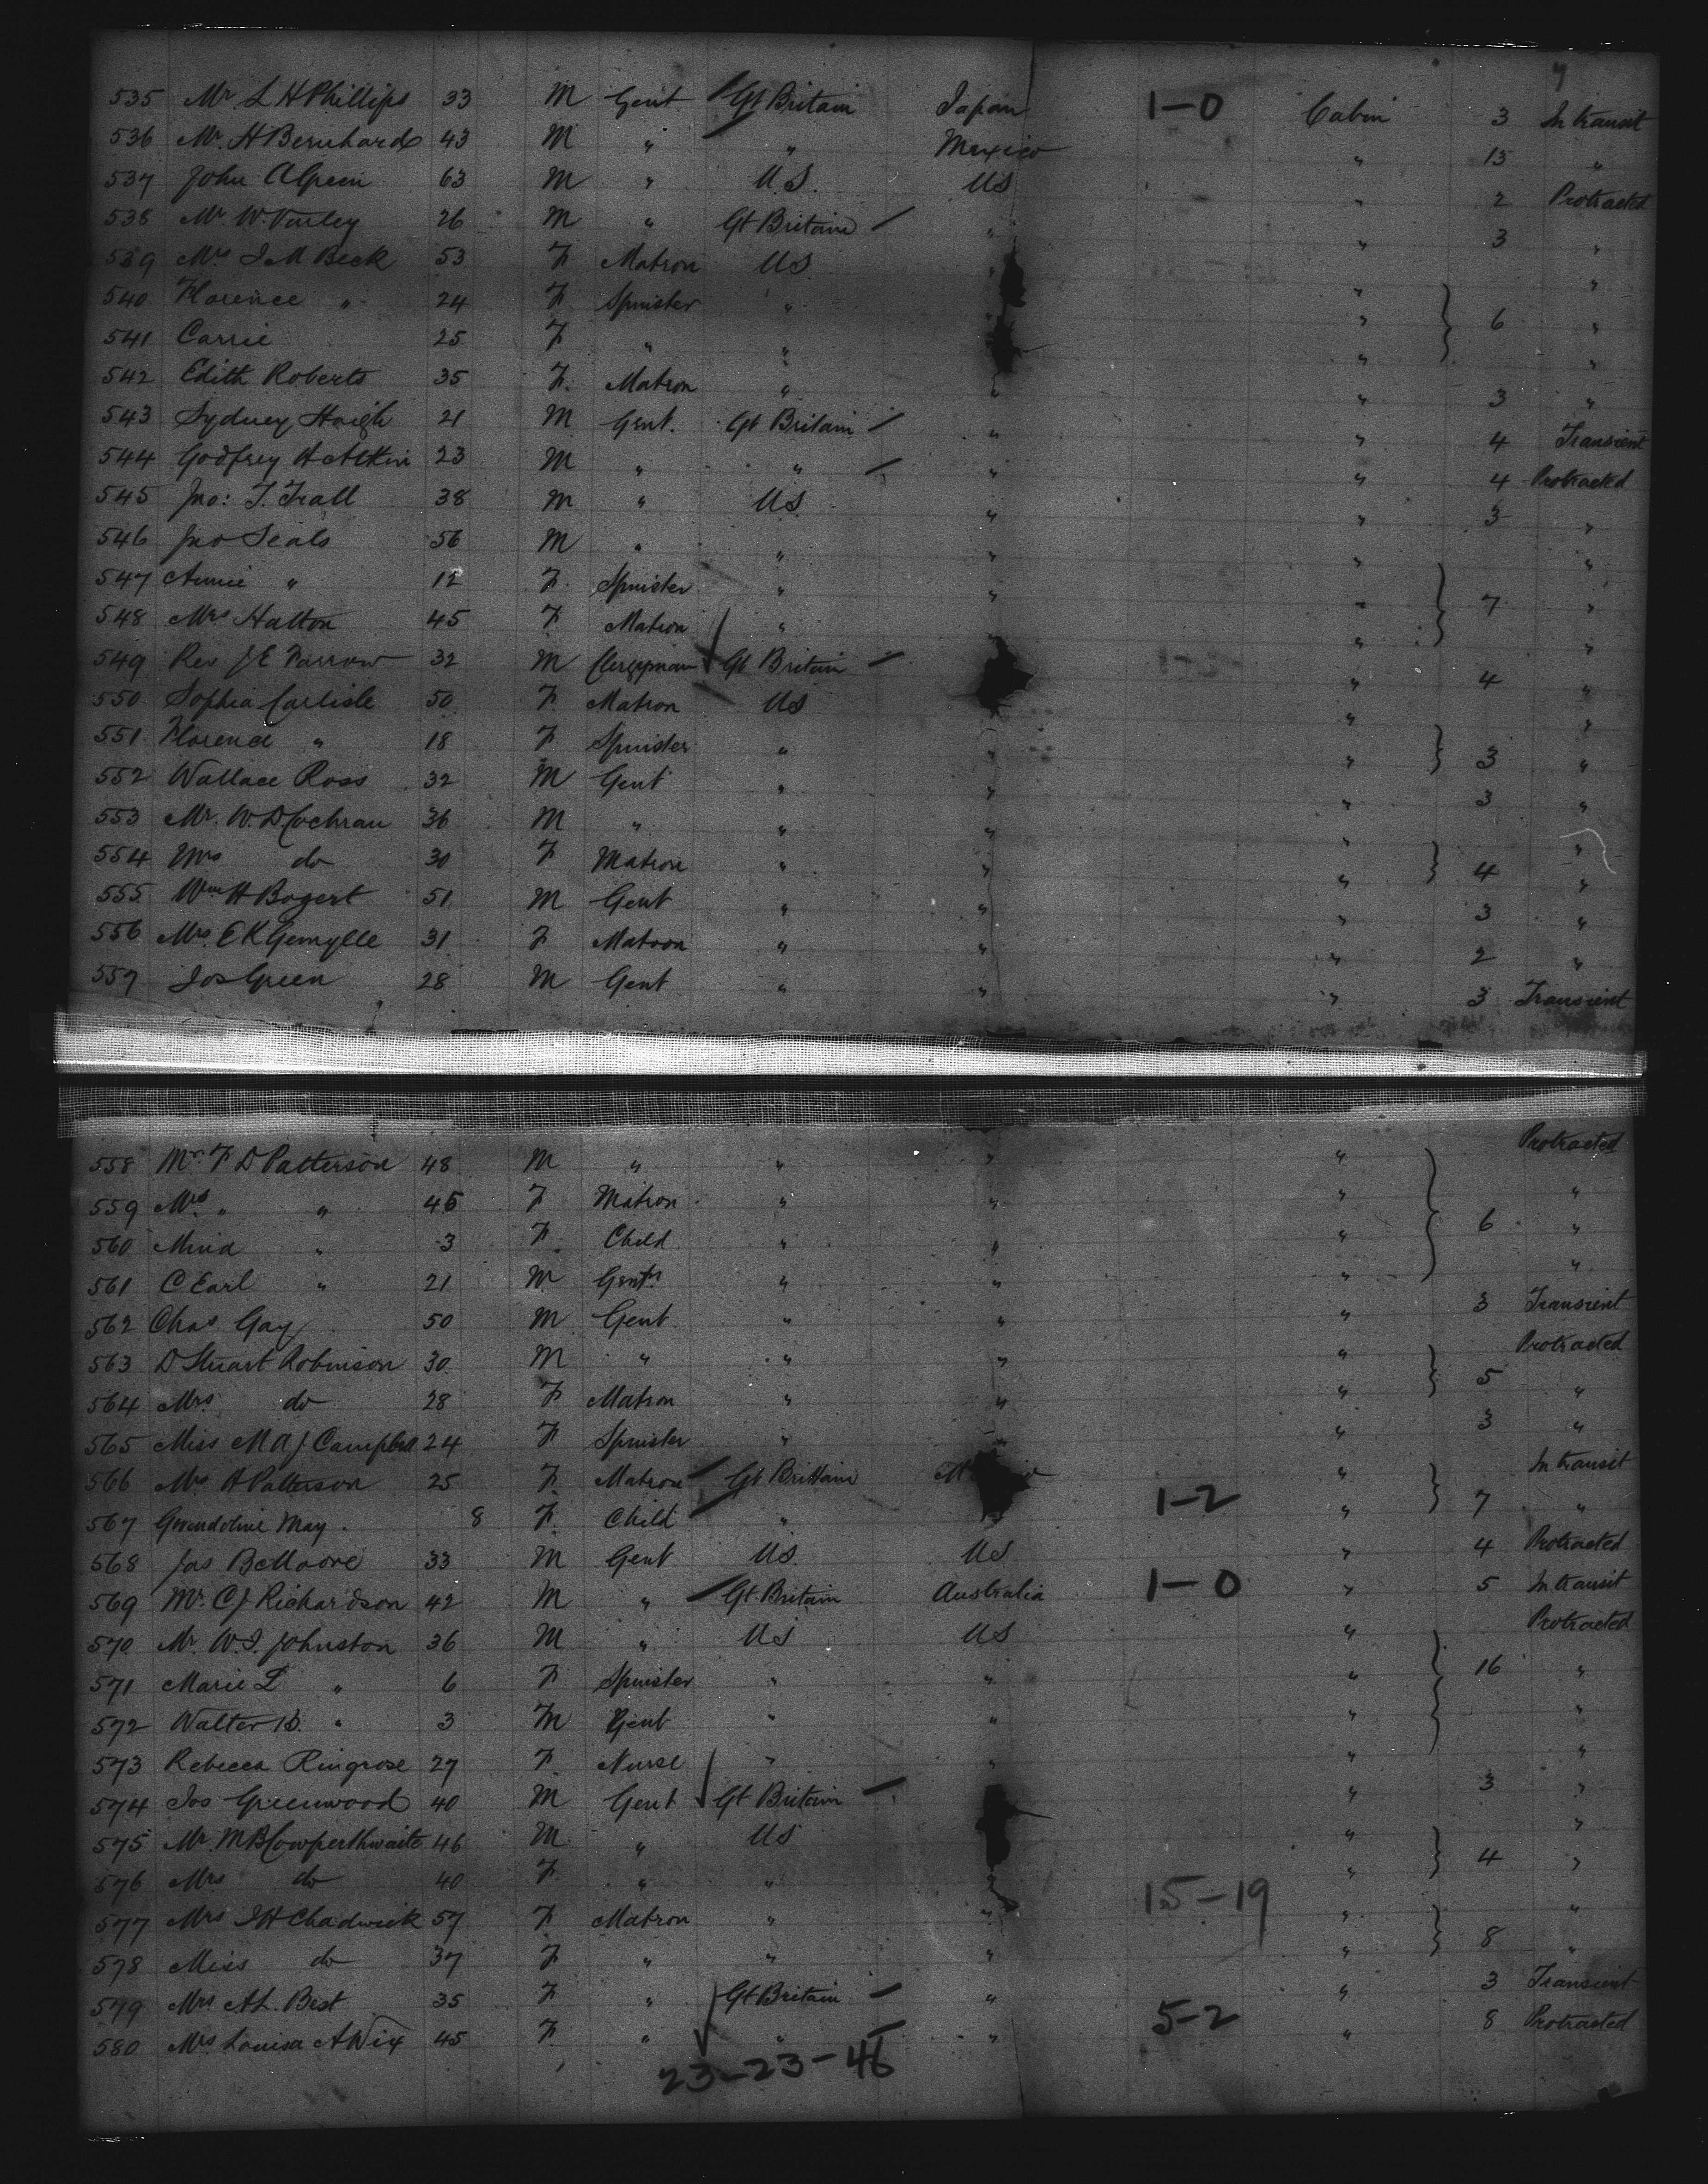 7
535 Mr L H Phillips 33 M Gent Gt Britain Japan 1-0 Cabin 3 In transit
536 Mr. H Bernhard 43 M " " Mexico " 13 "
537 John A Green 63 M " U.S. US " 2 Protracted
538 Mr W. Varley 26 M " Gt Britain " " 3 "
539 Mrs J M Beck 53 F Matron US " " "
540 Florence " 24 F Spinster " " " 6 "
541 Carrie 25 F " " " "
542 Edith Roberts 35 F. Matron " " " 3 "
543 Sydney Haigh 21 M Gent. Gt Britain " " 4 Transient
544 Godfrey H Atkin 23 M " " " " 4 Protracted
545 Jno: T. Trall 38 M " US " " 3 "
546 Jno Seals 56 M " " " " "
547 Annie " 12 F. Spinster " " " 7 "
548 Mrs Hatton 45 F Matron " " "
549 Rev J E Farrow 32 M Clergyman Gt Britain " 4 "
550 Sophia Carlisle 50 F. Matron US " "
551 Florence " 18 F Spinster " " " 3 "
552 Wallace Ross 32 M Gent " " " 3 "
553 Mr. W. D Cochran 36 M " " " " "
554 Mrs do 30 F Matron " " " 4 "
555 Wm H Bogert 51 M Gent " " " 3 "
556 Mrs. E K Gemylle 31 F Matron " " " 2 "
557 Jos Green 28 M Gent " " " 3 Transient
558 Mr. F D Patterson 48 M " " " " Protracted
559 Mrs " " 45 F Matron " " " "
560 " 3 F. Child " " " 6 "
561 C Earl " 21 M Gent " " " "
562 Chas Gay 50 M Gent " " " 3 Transient
563 D Stuart Robinson 30 M " " " " Protracted
564 Mrs do 28 F Matron " " " 5 "
565 Miss M A J Campbell 24 F Spinster " " 3 "
566 Mrs H Patterson 25 F. Matron Gt Brittain " In transit
567 Gwendoline May. 8 F. Child " 1-2 " 7 "
568 Jas Moore 33 M Gent US US " 4 Protracted
569 Mr. C J Richardson 42 M " Gt. Britain Australia 1-0 " 5 In transit
570 Mr. W. I. Johnston 36 M " US US " Protracted
571 Marie L " 6 F Spinster " " " 16 "
572 Walter B. " 3 M Gent " " " "
573 Rebecca Ringrose 27 F. Nurse " " " "
574 Jos Greenwood 40 M Gent Gt Britain " 3 "
575 Mr. M B Cowperthwaite 46 M. " US " "
576 Mrs do 40 F. " " " " 4 "
577 Mrs J H Chadwick 57 F Matron " " 15-19 " "
578 Miss do 37 F " " " " 8 "
579 Mrs A L. Best 35 F " Gt Britain " " 3 Transient
580 Mrs Louisa A Wix 45 F " " " 5-2 " 8 Protracted
23-23-46